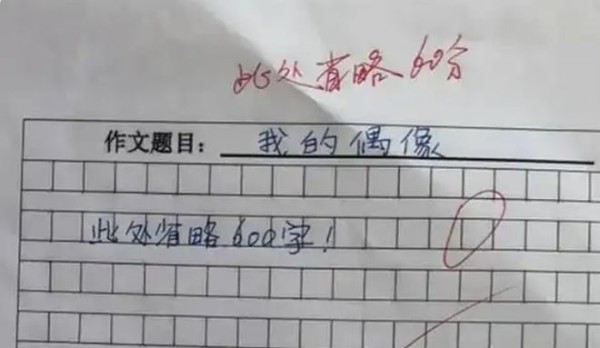 此处省略60分
作文题目：我的偶像
此处省略600字！